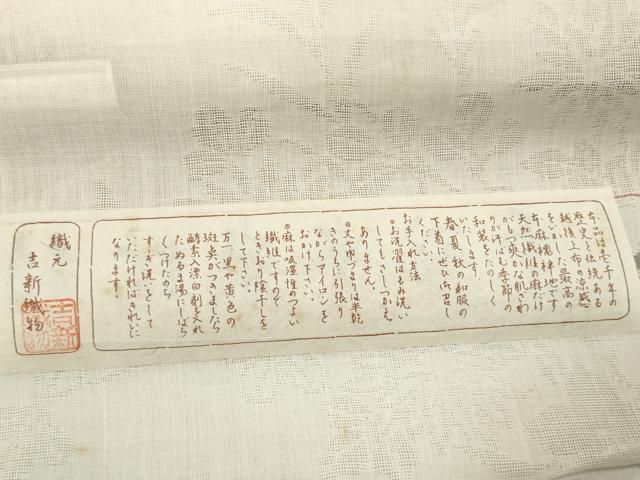 本品は壱千年の
歴史と伝統ある
越後上布の涼感
をいかした最高の
本麻襦袢地です
天然繊維の麻だけ
がもつ爽かな肌ざわ
りが汗ばむ季節の
和装をたのしく
いたします。
春、夏、秋の和服の
下着にぜひ御召し
ください。
お手入れ方法
◎お洗濯はもみ洗い
してもさしつかえ
ありません。
◎丈や巾づまりは半乾
きのうちに引張り
ながらアイロンを
おかけ下さい。
◎麻は吸湿性のつよい
繊維ですので
ときおり陰干しを
して下さい。
万一黒や黄色の
斑点がつきましたら
酵素入漂白剤を入れ
たぬるま湯にしばら
くつけたのち
すすぎ洗いをして
いただければきれいに
なります。
織元
吉新織物